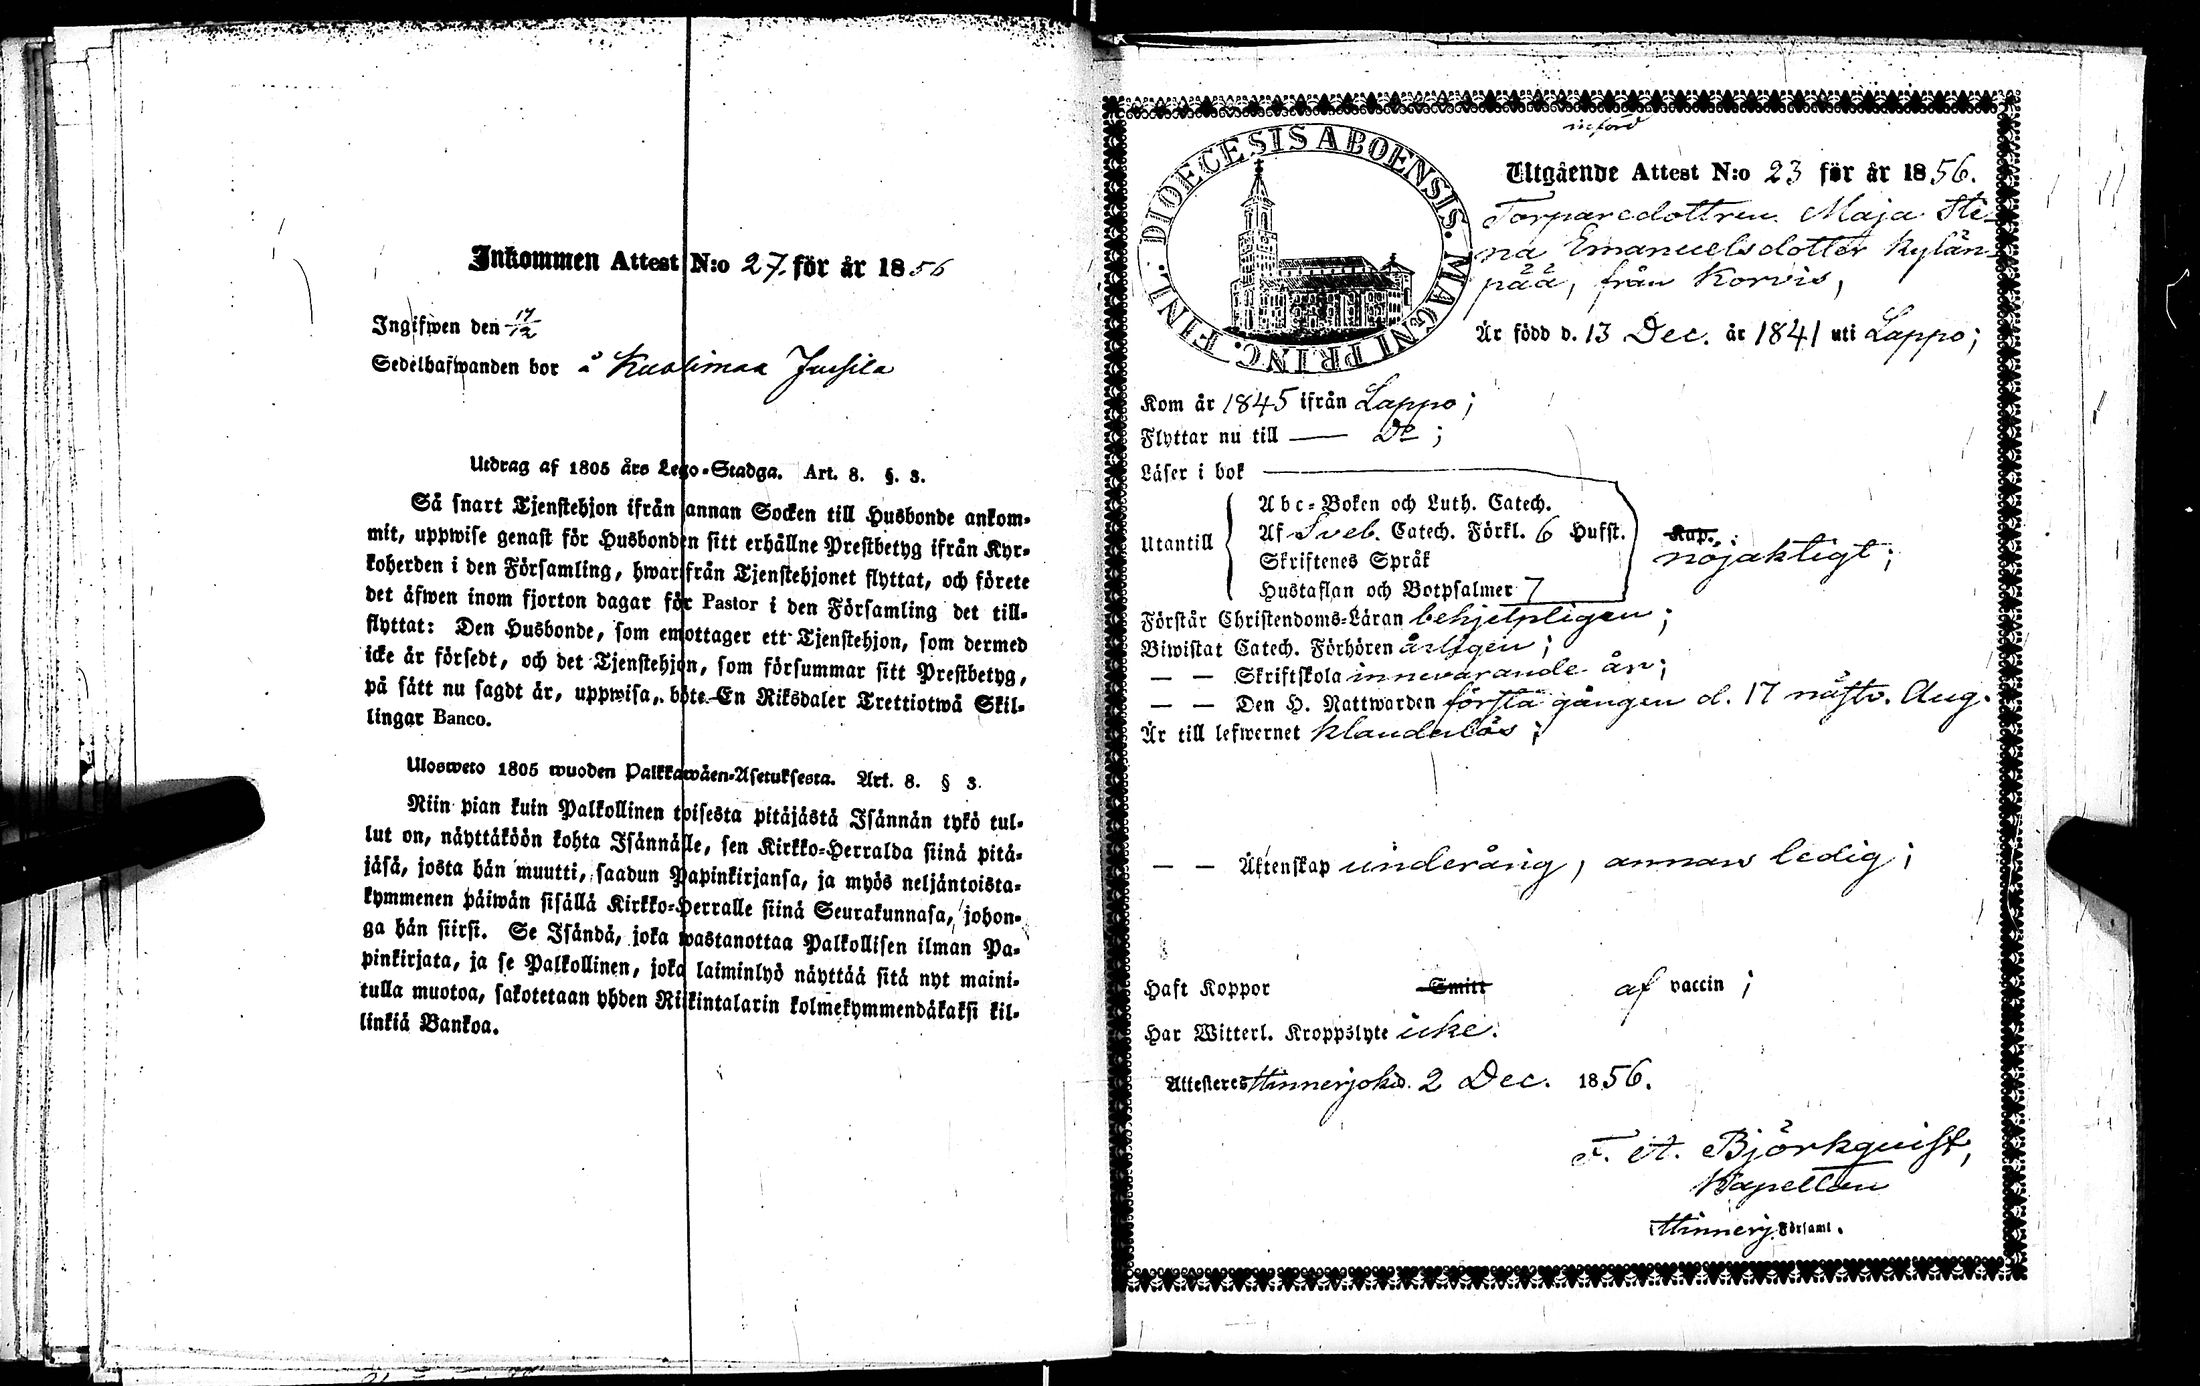 Inkommen Attest N:o 27. för år 1856
Ingifwen den 17/12
Sedelhafwanden bor å Kuolimaa Jussila
Utdrag af 1805 års Lego-Stadga. Art. 8. §. 3.
Så snart Tjenstehjon ifrån annan Socken till Husbonde ankom-
mit, uppwise genast för Husbonden sitt erhållne Prestbetyg ifrån Kyr-
koherden i den Församling, hwarifrån Tjenstehjonet flyttat, och förete
det äfwen inom fjorton dagar för Pastor i den Församling det till-
flyttat: Den Husbonde, som emottager ett Tjenstehjon, som dermed
icke är försedt, och det Tjenstehjon, som försummar sitt Prestbetyg,
på sätt nu sagdt är, uppwisa, böte En Riksdaler Trettiotwå Skil-
lingar Banco.
Ulosweto 1805 wuoden Palkkawäen-Asetuksesta. Art. 8. § 3.
Niin pian kuin Palkollinen toisesta pitäjästä Isännän tykö tul-
lut on, näyttäköön kohta Isännälle, sen Kirkko-Herralda siinä pitä-
jäsä, josta hän muutti, saadun Papinkirjansa, ja myös neljäntoista-
kymmenen päiwän sisällä Kirkko-Herralle siinä Seurakunnasa, johon-
ga hän siirsi. Se Isändä, joka wastanottaa Palkollisen ilman Pa-
pinkirjata, ja se Palkollinen, joka laiminlyö näyttää sitä nyt maini-
tulla muotoa, sakotetaan yhden Riikintalarin kolmekymmendäkaksi kil-
linkiä Bankoa.
införd
DIOECESIS ABOENSIS. MAGNI PRINC. FINL.
Utgående Attest N:o 23 för år 1856.
Torparedottren Maja Ste-
na Emanuelsdotter Kylän-
pää, från Korvis,
Är född d. 13 Dec. år 1841 uti Lappo;
Kom år 1845 ifrån Lappo;
Flyttar nu till — Do;
Läser i bok
Utantill
Abc-Boken och Luth. Catech.
Af Sveb. Catech. Förkl. 6 Hufst. Kap.
nöjaktigt;
Skriftenes Språk
Hustaflan och Botpsalmer 7
Förstår Christendoms-Läran behjelpligen;
Biwistat Catech. Förhören årligen;
— — Skriftskola innevarande år;
— — Den H. Nattwarden första gången d. 17 nästv. Aug.
Är till lefwernet klanderlös;
— — Äktenskap underårig, annars ledig;
Haft Koppor Smitt af vaccin;
Har Witterl. Kroppslyte icke.
Attesteres Hinnerjoki d. 2 Dec. 1856.
F. A. Björkquist,
Kapellan
Hinnerj. Församl.